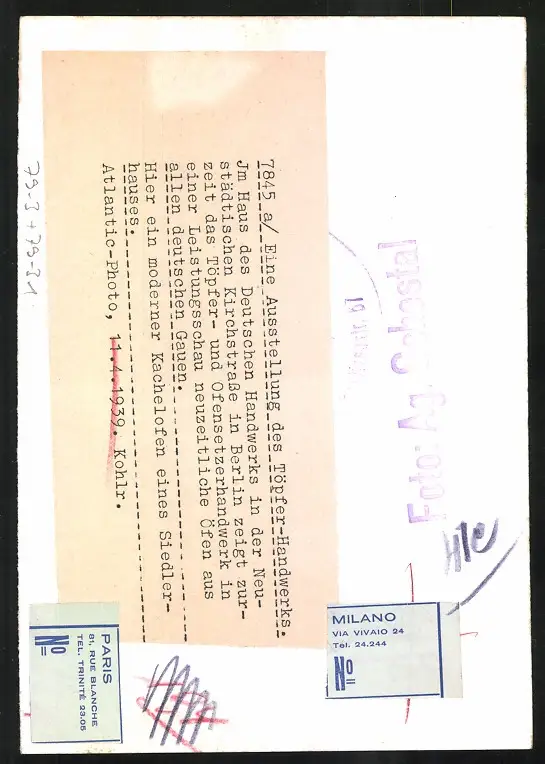 7845 a/ Eine Ausstellung des Töpfer-Handwerks.
Jm Haus des Deutschen Handwerks in der Neu-
städtischen Kirchstraße in Berlin zeigt zur-
zeit das Töpfer- und Ofensetzerhandwerk in
einer Leistungsschau neuzeitliche Öfen aus
allen deutschen Gauen.
Hier ein moderner Kachelofen eines Siedler-
hauses.
Atlantic-Photo, 11.4.1939. Kohlr.
79-3 + 79-31
Foto: Ag. Schostal
67
MILANO
VIA VIVAIO 24
Tél. 24.244
No
PARIS
81, RUE BLANCHE
TEL. TRINITÉ 23.05
No